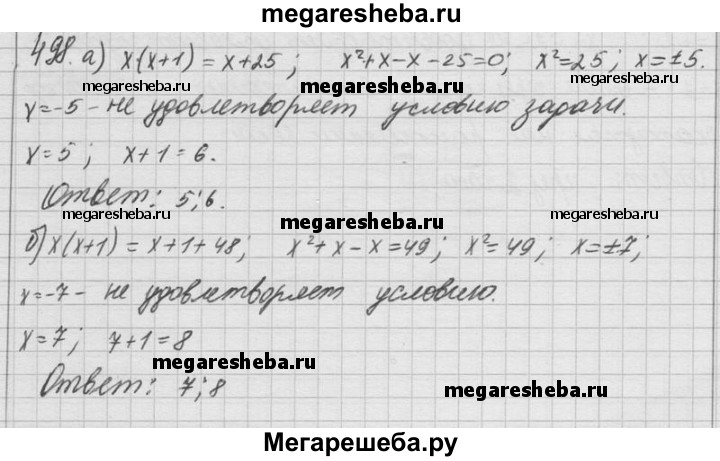 megaresheba.ru
498. а) x(x+1) = x+25; x²+x-x-25=0; x²=25; x=±5.
megaresheba.ru megaresheba.ru
x=-5 - не удовлетворяет условию задачи.
x=5; x+1=6.
Ответ: 5; 6.
megaresheba.ru megaresheba.ru
б) x(x+1) = x+1+48; x²+x-x=49; x²=49; x=±7;
x=-7 - не удовлетворяет условию.
x=7; 7+1=8
megaresheba.ru
Ответ: 7; 8
megaresheba.ru
Мегарешеба.ру